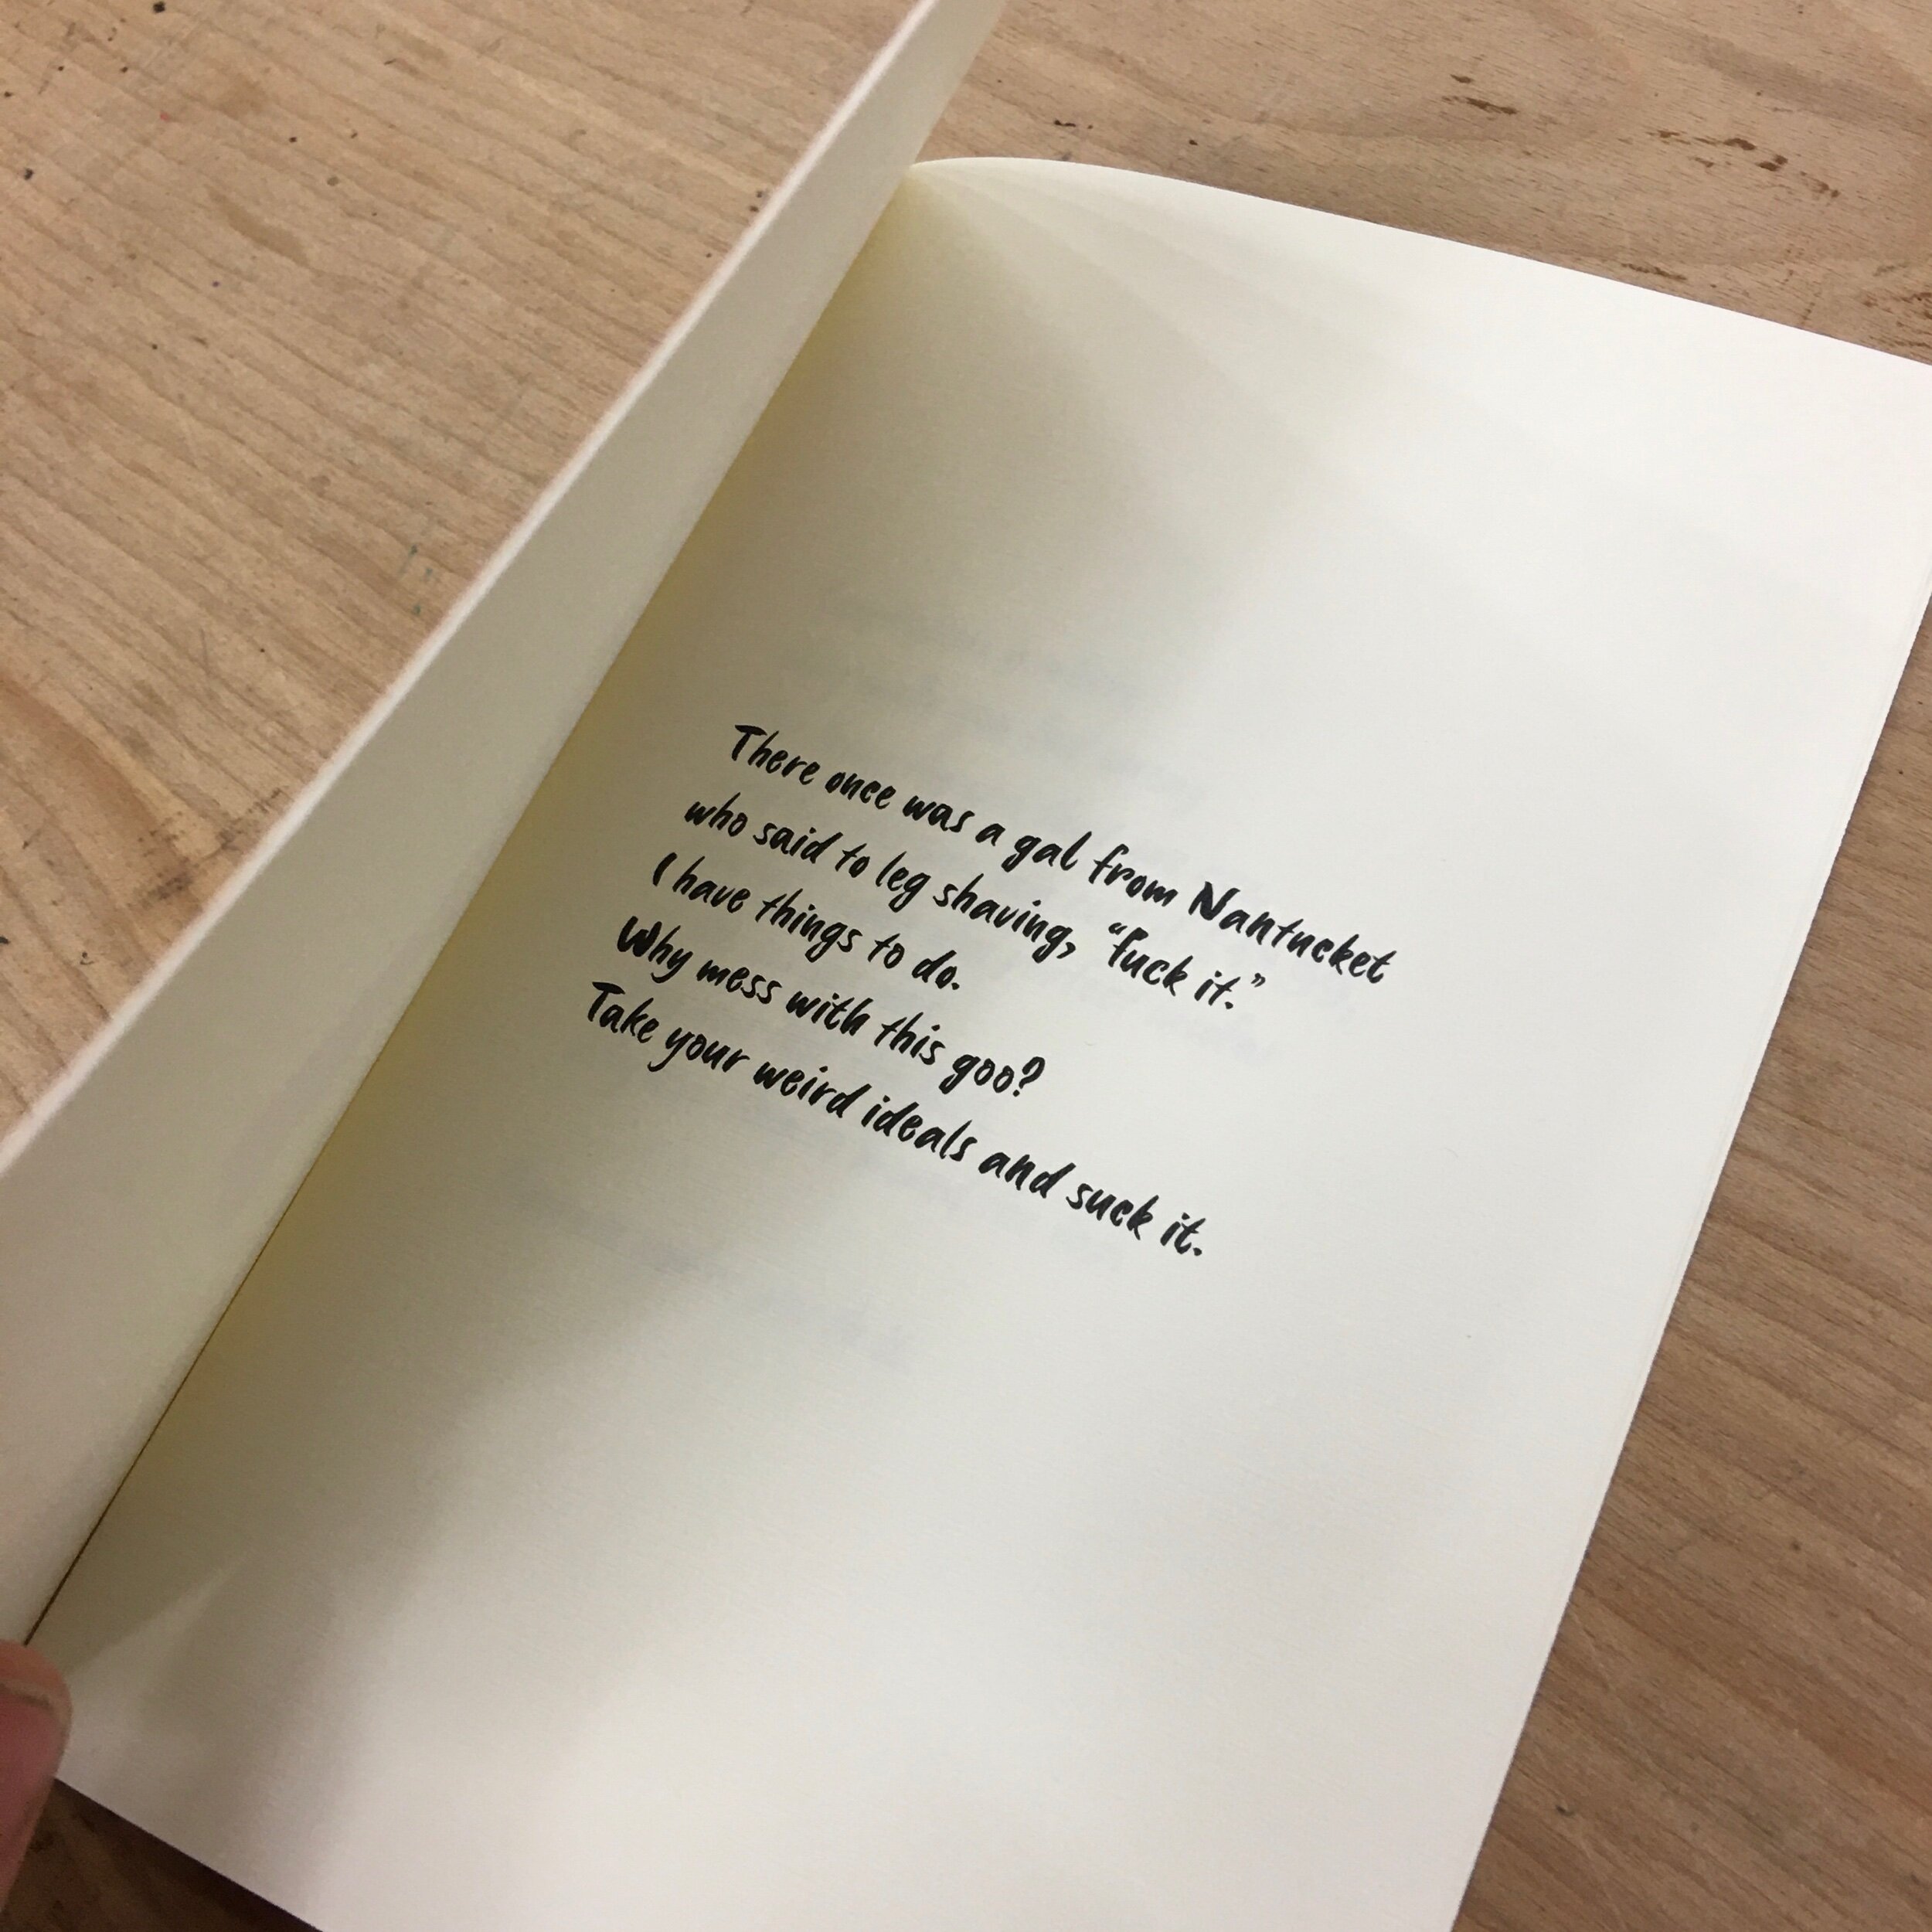 There once was a gal from Nantucket
who said to leg shaving, “fuck it.”
I have things to do.
Why mess with this goo?
Take your weird ideals and suck it.